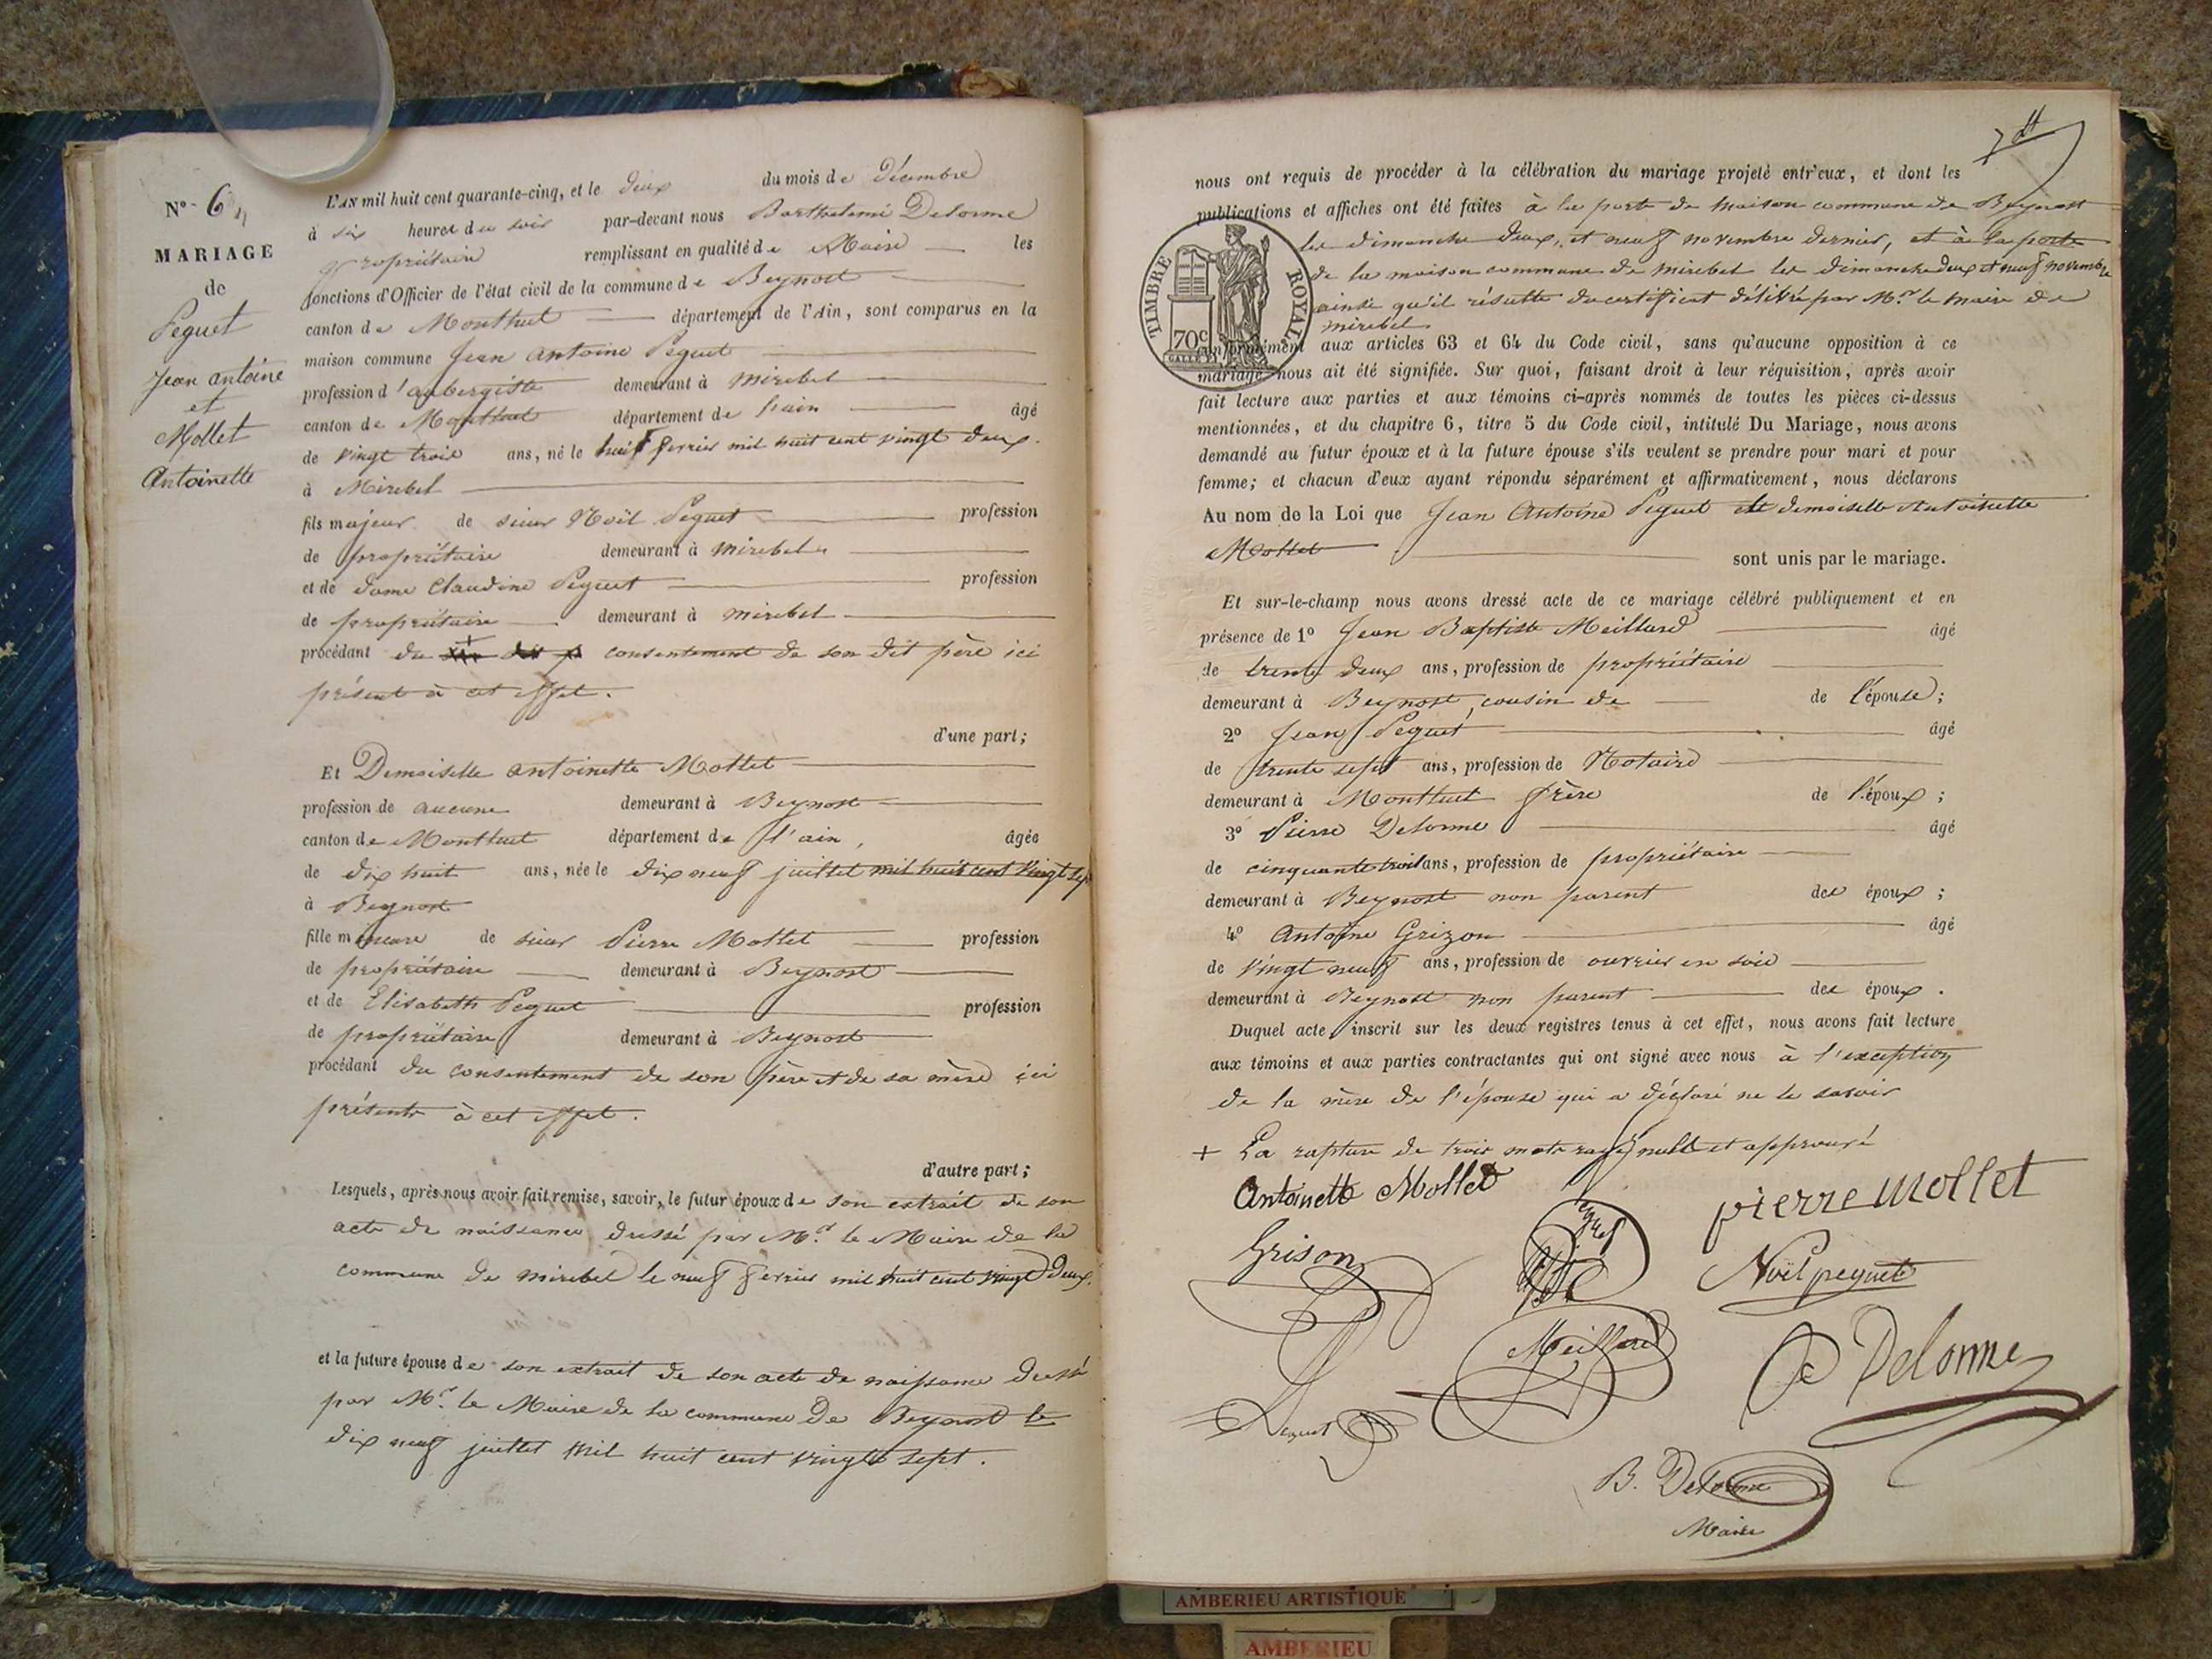 N° 6
MARIAGE
de
Peguet
Jean antoine
et
Mollet
Antoinette
L'AN mil huit cent quarante-cinq, et le deux du mois de décembre
à six heures du soir par-devant nous Barthelemi Delorme
propriétaire remplissant en qualité de Maire les
fonctions d'Officier de l'état civil de la commune de Beynost
canton de Montluel département de l'Ain, sont comparus en la
maison commune Jean antoine Peguet
profession d'aubergiste demeurant à mirebel
canton de Montluel département de hain âgé
de vingt trois ans, né le huit fevrier mil huit cent vingt deux.
à Mirebel
fils majeur de sieur Noël Peguet profession
de propriétaire demeurant à mirebel
et de dame Claudine Peguet profession
de propriétaire demeurant à mirebel
procédant du + consentement de son dit père ici
présent à cet effet.
d'une part;
Et Demoiselle antoinette Mollet
profession de aucune demeurant à Beynost
canton de Montluel département de l'ain, âgée
de dix huit ans, née le dix neuf juillet mil huit cent vingt sept
à Beynost
fille mineure de sieur Pierre Mollet profession
de propriétaire demeurant à Beynost
et de Elisabeth Peguet profession
de propriétaire demeurant à Beynost
procédant du consentement de son père et de sa mère ici
présents à cet effet.
d'autre part;
Lesquels, après nous avoir fait remise, savoir, le futur époux de son extrait de son
acte de naissance dressé par Mr. le Maire de la
commune de mirebel le neuf fevrier mil huit cent vingt deux.
et la future épouse de son extrait de son acte de naissance dressé
par Mr. le Maire de la commune de Beynost le
dix neuf juillet mil huit cent vingt sept.
nous ont requis de procéder à la célébration du mariage projeté entr'eux, et dont les
publications et affiches ont été faites à la porte de maison commune de Beynost
les dimanche deux, et neuf novembre dernier, et à la porte
de la maison commune de mirebel les dimanche deux et neuf novembre
ainsi qu'il résulte du certificat délivré par Mr. le maire de
mirebel
TIMBRE ROYAL
70c
conformément aux articles 63 et 64 du Code civil, sans qu'aucune opposition à ce
mariage nous ait été signifiée. Sur quoi, faisant droit à leur réquisition, après avoir
fait lecture aux parties et aux témoins ci-après nommés de toutes les pièces ci-dessus
mentionnées, et du chapitre 6, titre 5 du Code civil, intitulé Du Mariage, nous avons
demandé au futur époux et à la future épouse s'ils veulent se prendre pour mari et pour
femme; et chacun d'eux ayant répondu séparément et affirmativement, nous déclarons
Au nom de la Loi que Jean Antoine Peguet et demoiselle Antoinette
Mollet sont unis par le mariage.
Et sur-le-champ nous avons dressé acte de ce mariage célébré publiquement et en
présence de 1° Jean Baptiste Meillard âgé
de trente deux ans, profession de propriétaire
demeurant à Beynost, cousin de de l'épouse;
2° Jean Peguet âgé
de trente sept ans, profession de Notaire
demeurant à Montluel frère de l'époux;
3° Pierre Delorme âgé
de cinquante trois ans, profession de propriétaire
demeurant à Beynost non parent des époux;
4° Antoine Grizon âgé
de vingt neuf ans, profession de ouvrier en soie
demeurant à Beynost non parent des époux.
Duquel acte, inscrit sur les deux registres tenus à cet effet, nous avons fait lecture
aux témoins et aux parties contractantes qui ont signé avec nous à l'exception
de la mère de l'épouse qui a déclaré ne le savoir
+ La rapture de trois mots rayé nulle et approuvé
Antoinette Mollet
pierre mollet
Grison
Noël peguet
Meillard
Delorme
Peguet
B. Delorme
Maire
AMBERIEU ARTISTIQUE
AMBERIEU